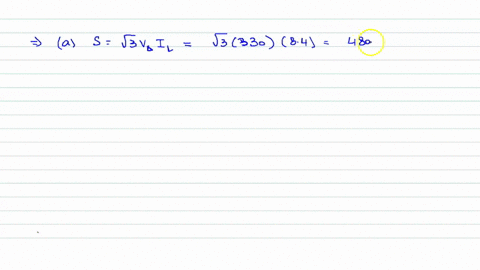 ⇒ (a) S = √3 V_L I_L = √3 (330) (8.4) = 480